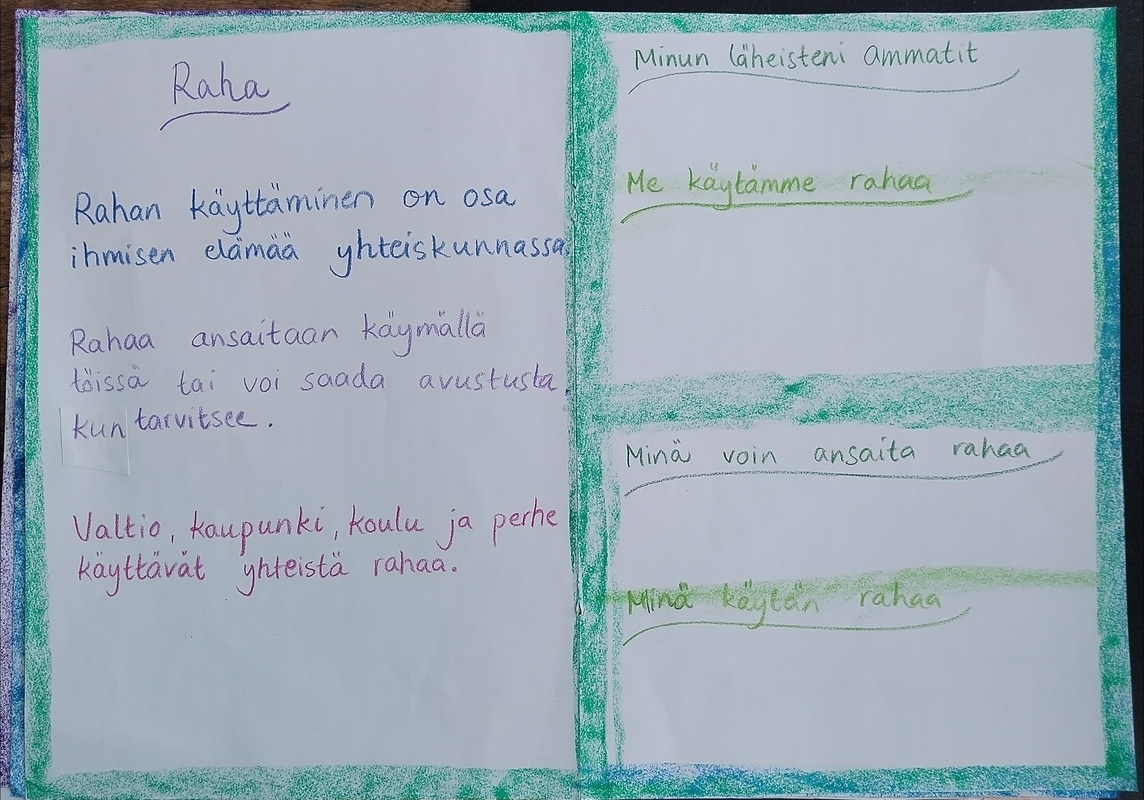 Raha
Rahan käyttäminen on osa
ihmisen elämää yhteiskunnassa
Rahaa ansaitaan käymällä
töissä tai voi saada avustusta,
kun tarvitsee.
Valtio, kaupunki, koulu ja perhe
käyttävät yhteistä rahaa.
Minun läheisteni ammatit
Me käytämme rahaa
Minä voin ansaita rahaa
Minä käytän rahaa